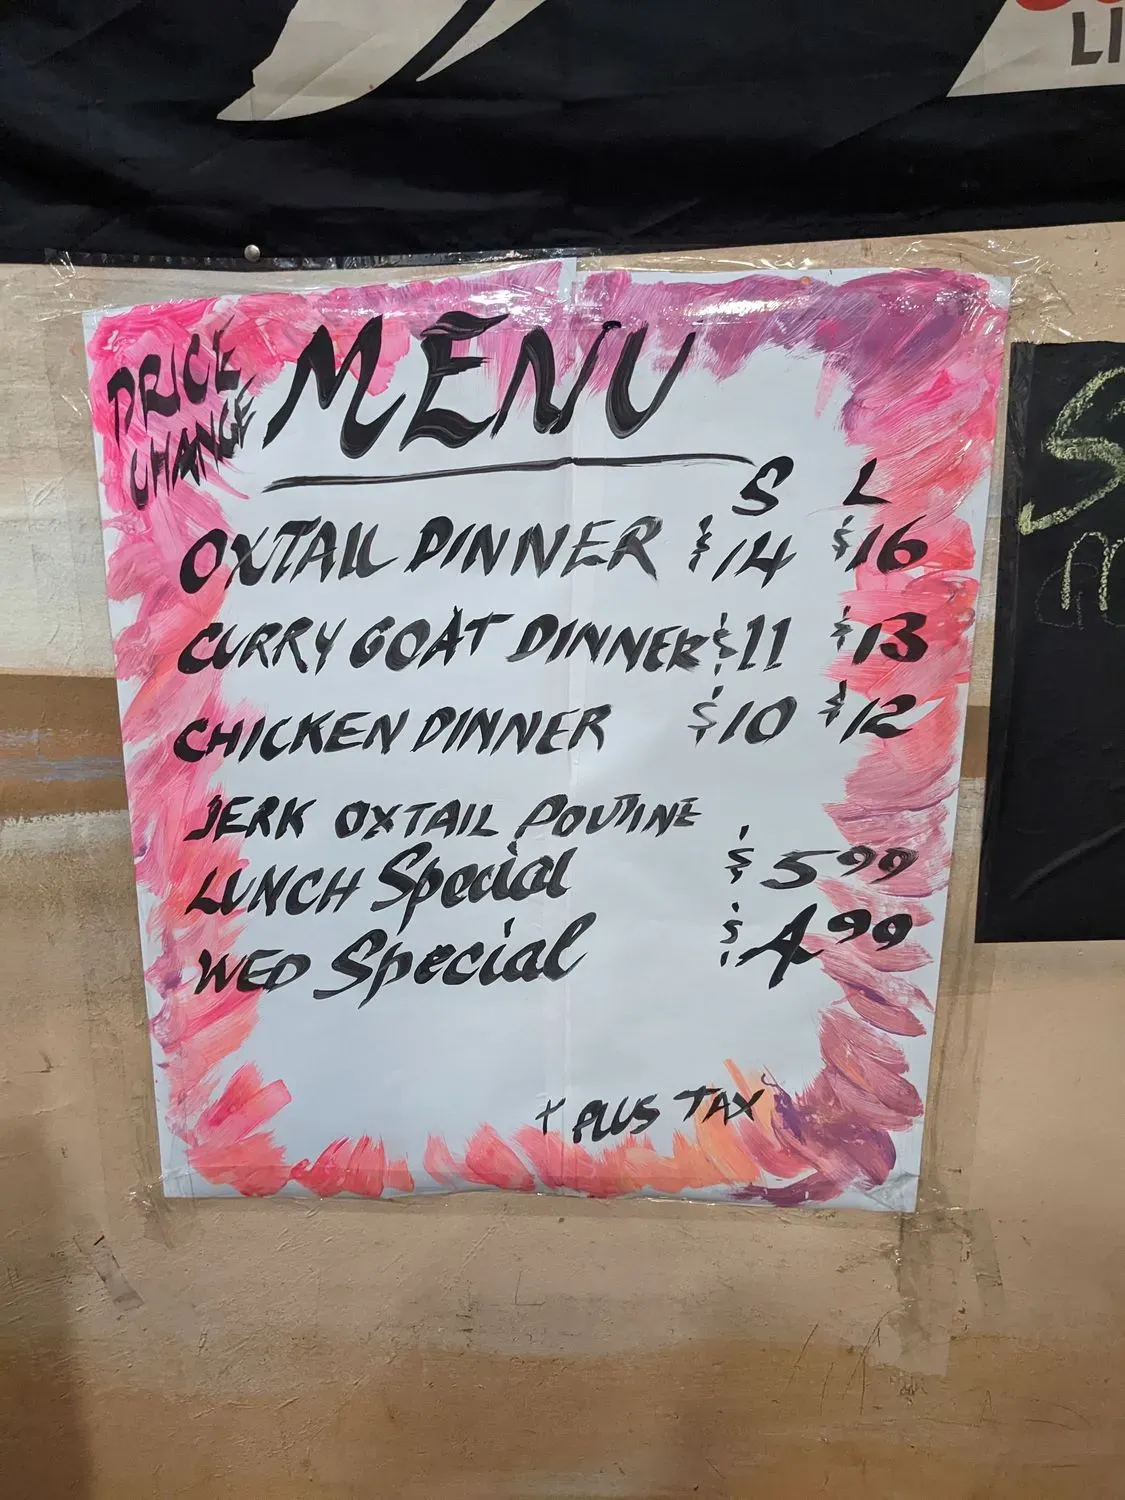 LI
PRICE
CHANGE
MENU
S L
OXTAIL DINNER $14 $16
CURRY GOAT DINNER $11 $13
CHICKEN DINNER $10 $12
JERK OXTAIL POUTINE
LUNCH Special $5.99
WED Special $4.99
+ PLUS TAX